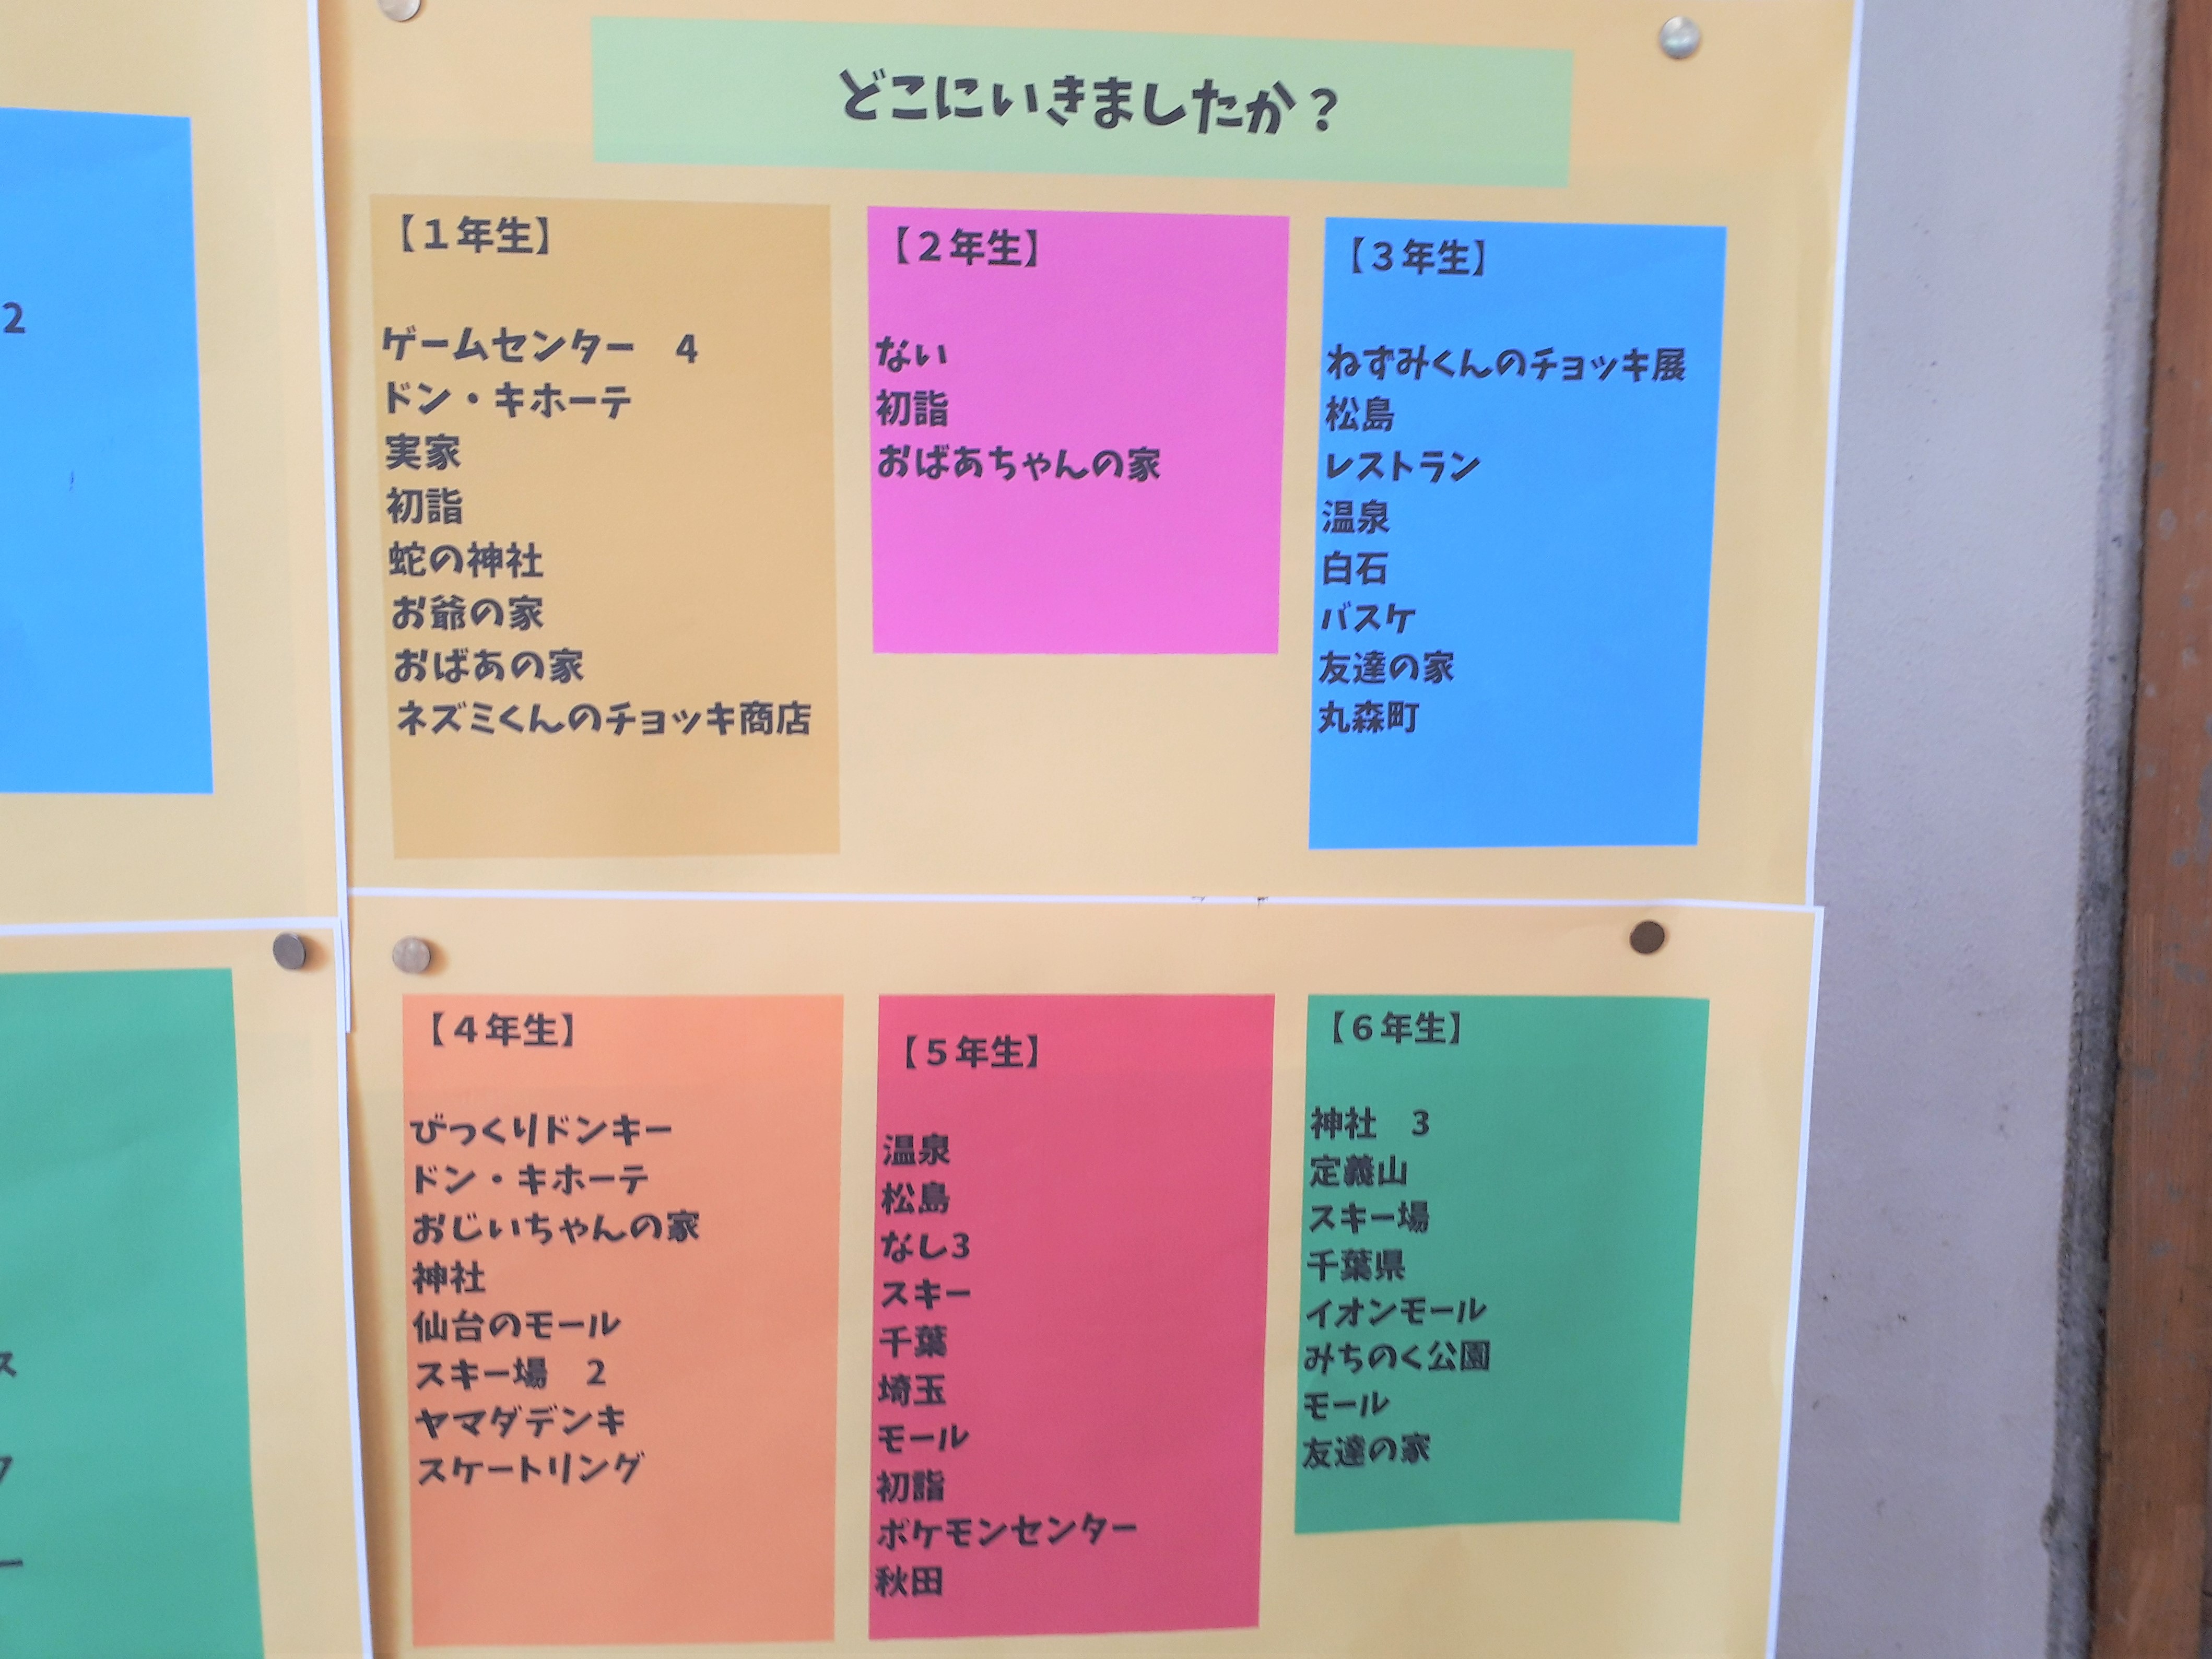 どこにいきましたか？
【１年生】
ゲームセンター　4
ドン・キホーテ
実家
初詣
蛇の神社
お爺の家
おばあの家
ネズミくんのチョッキ商店
【２年生】
ない
初詣
おばあちゃんの家
【３年生】
ねずみくんのチョッキ展
松島
レストラン
温泉
白石
バスケ
友達の家
丸森町
【４年生】
びっくりドンキー
ドン・キホーテ
おじいちゃんの家
神社
仙台のモール
スキー場　2
ヤマダデンキ
スケートリング
【５年生】
温泉
松島
なし3
スキー
千葉
埼玉
モール
初詣
ポケモンセンター
秋田
【６年生】
神社　3
定義山
スキー場
千葉県
イオンモール
みちのく公園
モール
友達の家
2
ス